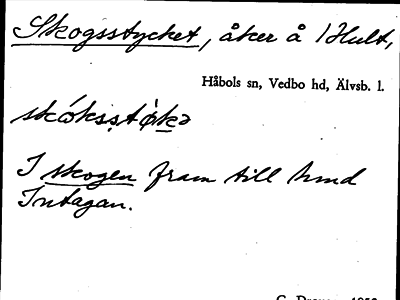 Skogsstycket, åker å 1 Hult,
Håbols sn, Vedbo hd, Älvsb. l.
skóksstø̀kə
I skogen fram till hmd
Intagan.